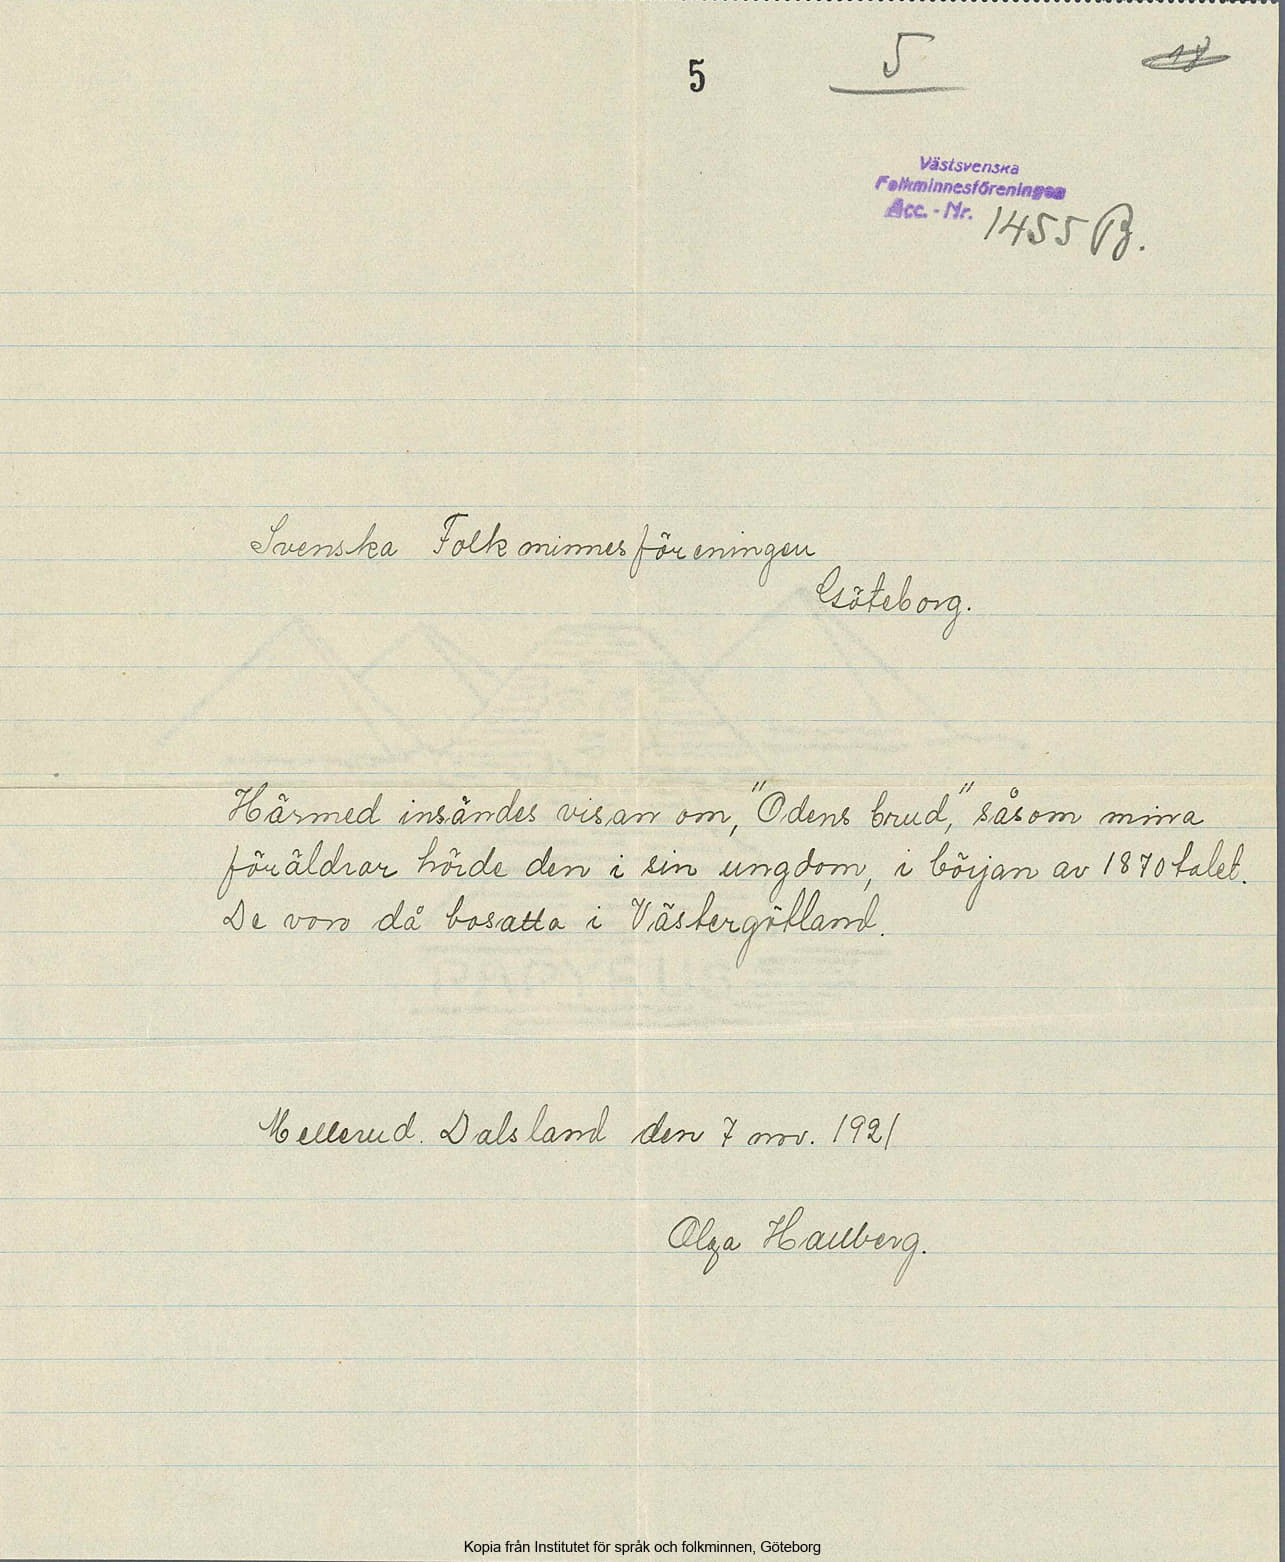 5
5
18
Västsvenska
Folkminnesföreningen
Acc. - Nr. 1455 B.
Svenska Folkminnesföreningen
Göteborg.
Härmed insändes visan om, "Odens brud," såsom mina
föräldrar hörde den i sin ungdom, i början av 1870 talet.
De voro då bosatta i Västergötland.
Mellerud. Dalsland den 7 nov. 1921
Olga Hallberg.
Kopia från Institutet för språk och folkminnen, Göteborg